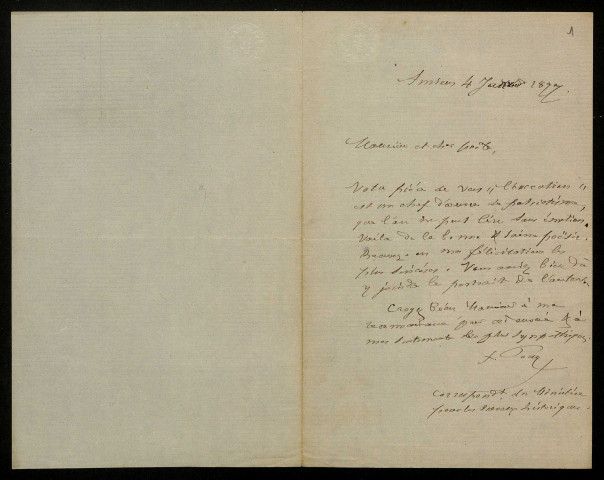 1
Amiens 4 1877.
Monsieur et cher poëte,
Votre pièce de vers "L'Exécution"
est un chef d'œuvre de patriotisme,
que l'on ne peut lire sans émotion.
Voilà de la bonne & saine poësie.
Recevez-en mes félicitations les
plus sincères. Vous auriez bien dû
y joindre le portrait de l'auteur.
Croyez bien Monsieur à ma
reconnaissance &à
mes sentiments les plus sympathiques
F. Pouy
correspondt. du Ministère
pour les travaux historiques.